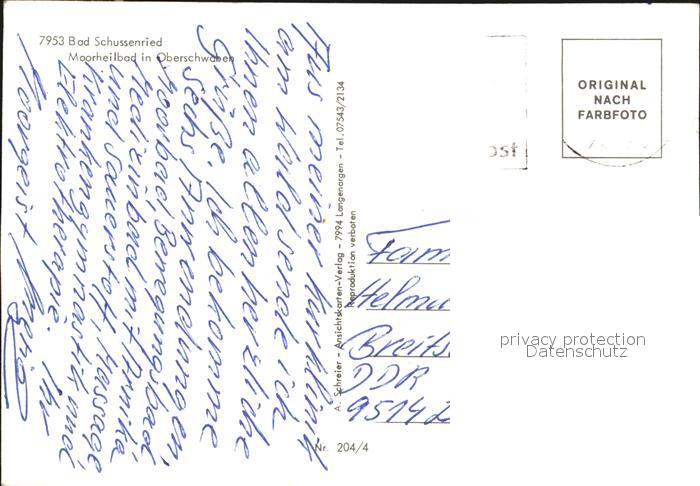 7953 Bad Schussenried
Moorheilbad in Oberschwaben
Aus meiner Kurklinik
am Wald sende ich
Ihnen allen herzliche
Grüße. Ich bekomme
sechs Anwendungen,
Moorbad, Bewegungsbad,
Medizinbad mit Arnika
und Sauerstoff, Massage,
Krankengymnastik und
Elektrotherapie. Ihr
A. Schreier - Ansichtskarten-Verlag - 7994 Langenargen - Tel. 07543/2134
Reproduktion verboten
ORIGINAL
NACH
FARBFOTO
ost
Fam
Helmu
Breits
DDR
9514 Z
privacy protection
Datenschutz
Nr. 204/4